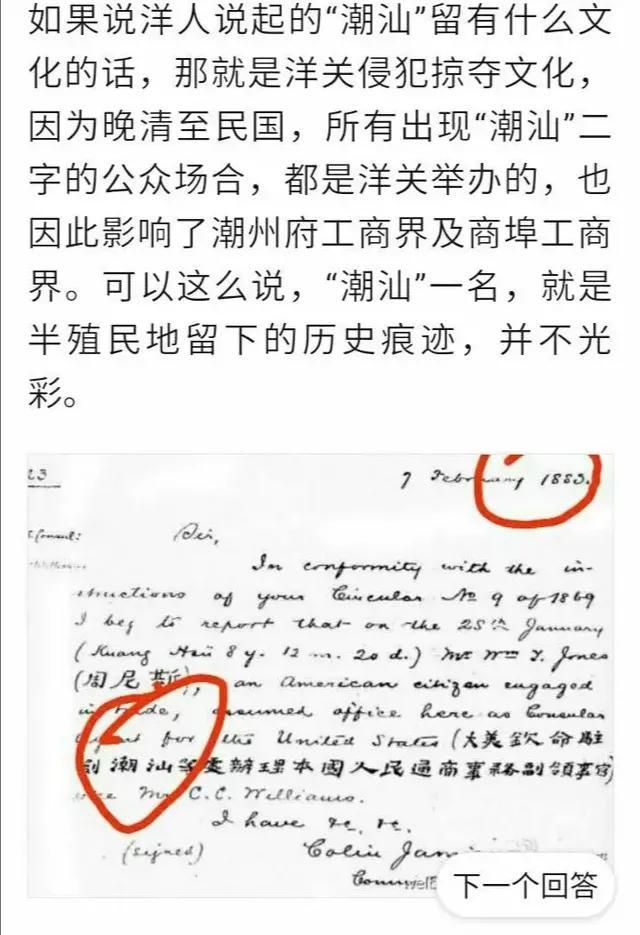 如果说洋人说起的“潮汕”留有什么文
化的话，那就是洋关侵犯掠夺文化，
因为晚清至民国，所有出现“潮汕”二
字的公众场合，都是洋关举办的，也
因此影响了潮州府工商界及商埠工商
界。可以这么说，“潮汕”一名，就是
半殖民地留下的历史痕迹，并不光
彩。
23
7 February 1883.
Sir,
In conformity with the in-
structions of your Circular No 9 of 1869
I beg to report that on the 28th January
(Kuang Hsü 8 y. 12 m. 20 d.) Mr Wm J. Jones
(周尼斯), an American citizen engaged
in trade, assumed office here as Consular
Agent for the United States (大美欽命駐
劄潮汕等處辦理本國人民通商事務副領事官)
vice Mr C. C. Williams.
I have &c. &c.
(signed) Colin Jam
下一个回答